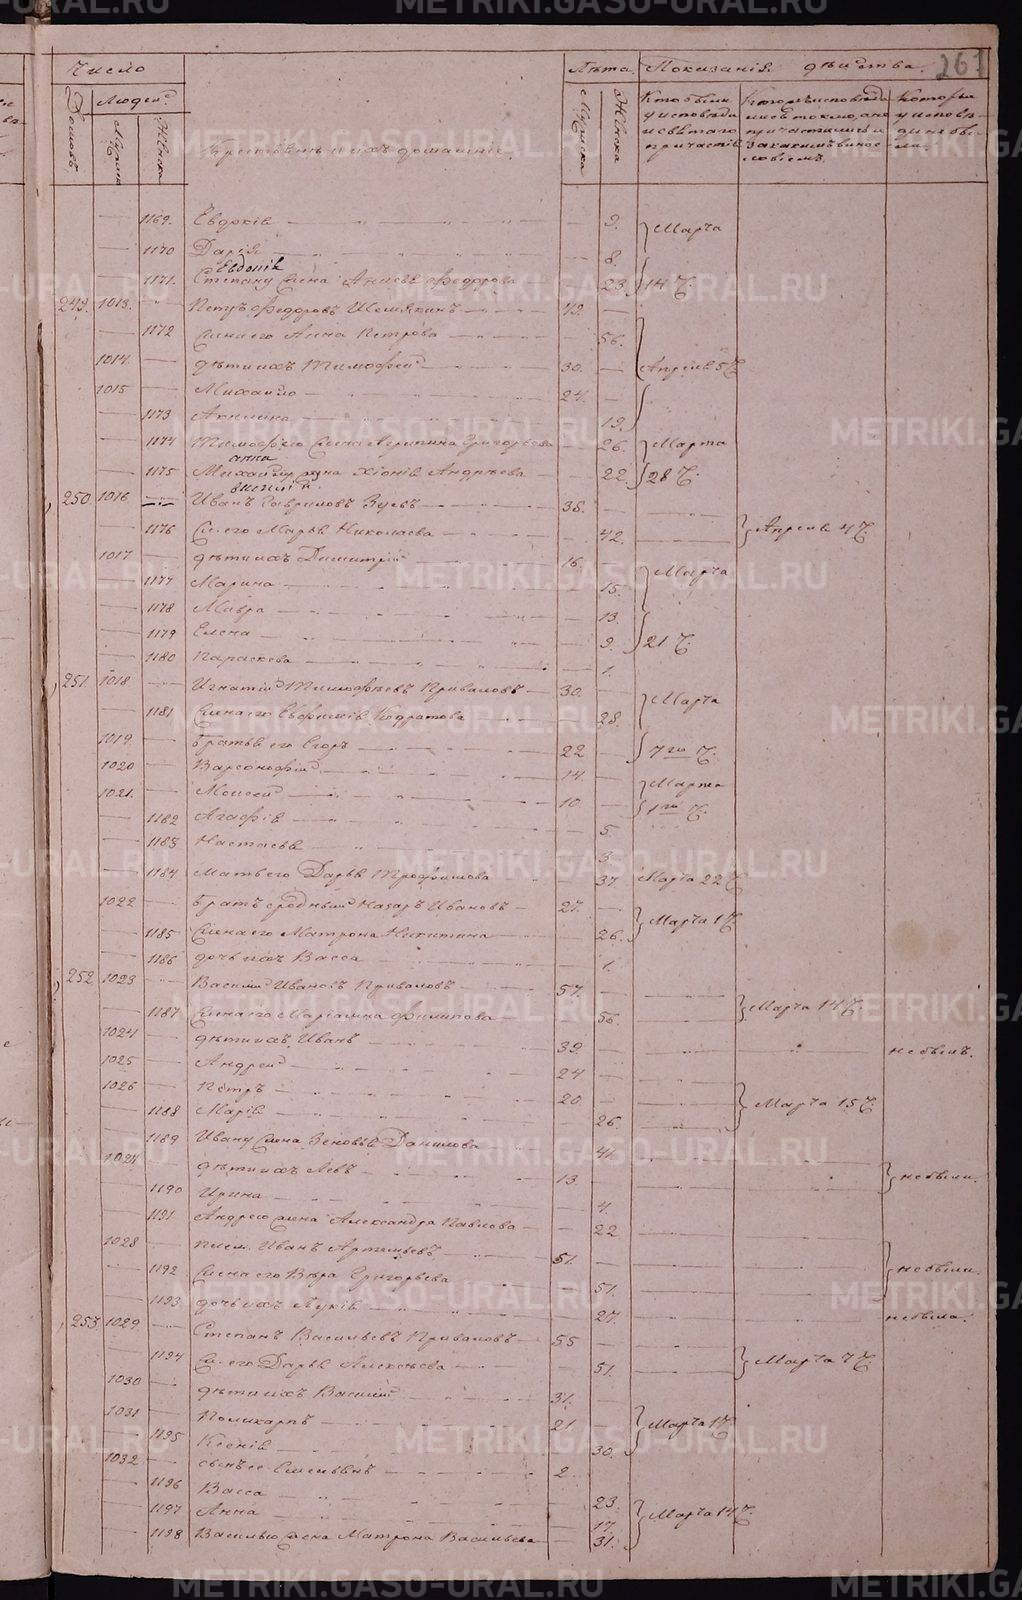 261
Число
Лѣта
Показанія дѣйства.
Домовъ.
Людей
Мужска
Женска
Крестьяне и ихъ домашніе.
Мужска
Женска
1169. Евдокія 9.
Марта
1170 Дарія 8.
Евдокія
1171. Степану жена Анисья Федорова 23.
14 Ч.
249. 1013. Петръ Федоровъ Шемякинъ
1172 Жена его Анна Петрова 56.
1014 дѣти ихъ Тимофей 30.
Апреля 5 Ч
1015 Михайло 24.
1173 Акилина 19.
1174 Тимофею жена Агрипина Григорьева 26.
Марта
1175 Михайлу жена Хіонія Андреева 22.
28 Ч.
250 1016 Иванъ Гавриловъ Зуевъ 38.
1176 Ж. его Марья Николаева 42.
Апреля 4 Ч.
1017 дѣти ихъ Димитрій 16.
1177 Марина 15.
Марта
1178 Мавра 13.
1179 Елена 9.
21 Ч.
1180 Параскева 1.
251. 1018 Игнатій Тимофеевъ Приваловъ 30.
Марта
1181 Жена его Евфимія Кодратова 28.
1019. Братья его Егоръ 22
7го Ч.
1020 Варсонофій 14.
1021. Моисей 10.
Марта
1го Ч.
1182 Агафія 5.
1183 Настасья 3.
1184 Мать его Дарья Трофимова 37
Марта 22 Ч
1022 Братъ средный Назаръ Ивановъ 27.
Марта 1 Ч
1185 Жена его Матрона Никитина 26.
1186 дочь ихъ Васса 1.
252 1023 Василій Ивановъ Приваловъ 57.
Марта 14 Ч.
1187 Жена его Маріамна Филипова 56.
1024 дѣти ихъ Иванъ 39.
не былъ.
1025 Андрей 24
1026 Петръ 20.
Марта 15 Ч.
1188 Марія 26.
1189 Ивану жена Зеновья Данилова 41.
1027 дѣти ихъ Левъ 13.
не были.
1190 Ирина 4.
1191 Андрею жена Александра Павлова 22
1028 плем. Иванъ Артемьевъ 51.
1192 Жена его Вера Григорьева 51.
не были.
1193 дочь ихъ Лукія 27.
не была.
253. 1029. Степанъ Васильевъ Приваловъ 55
1194 Ж. его Дарья Алексеева 51.
Марта 7 Ч.
1030 дѣти ихъ Василій 31.
1031 Поликарпъ 21.
Марта 1 Ч
1195 Ксенія 30.
1032 сынъ ее Емельянъ 2
1196 Васса 23.
1197 Анна 17.
Марта 14 Ч.
1198 Василью жена Матрона Васильева 31.
METRIKI.GASO-URAL.RU